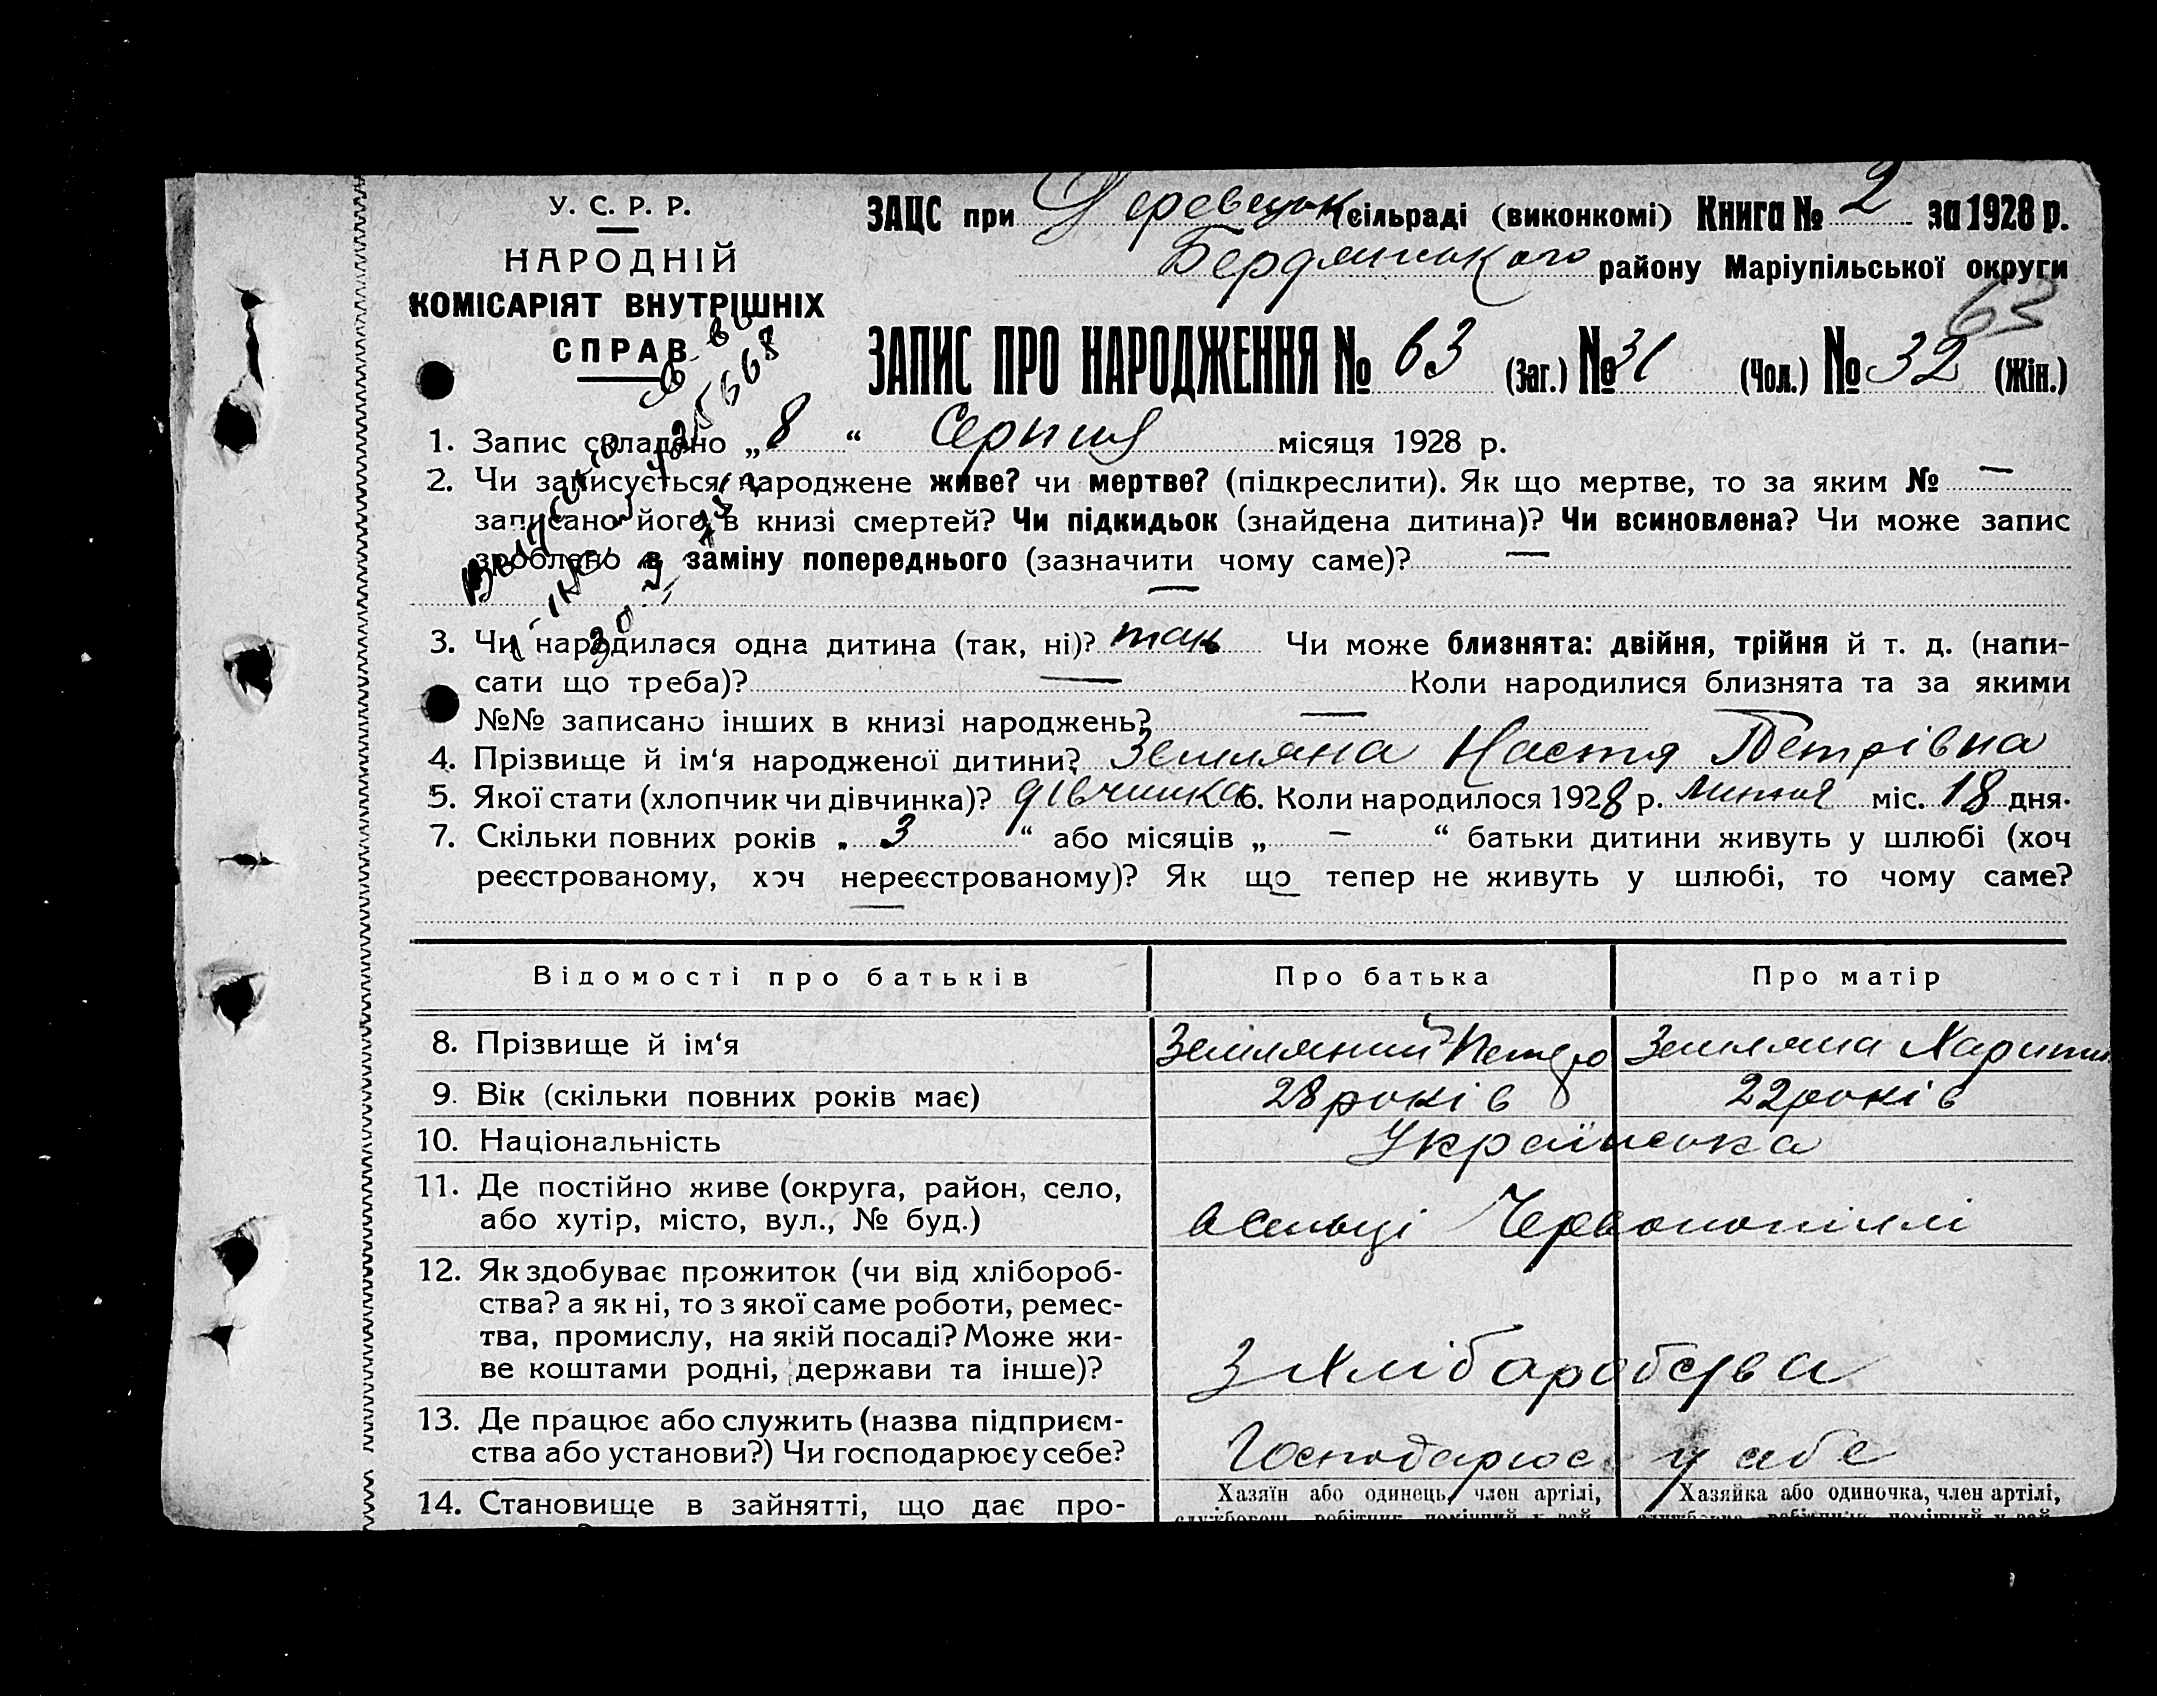 У. С. Р. Р.
НАРОДНІЙ
КОМІСАРІЯТ ВНУТРІШНІХ
СПРАВ
ЗАЦС при сільраді (виконкомі) Книга № 2 за 1928 р.
Бердянського району Маріупільської округи
63
ЗАПИС ПРО НАРОДЖЕННЯ № 63 (Заг.) № 31 (Чол.) № 32 (Жін.)
1. Запис складано „ 8 “ Серпня місяця 1928 р.
2. Чи записується народжене живе? чи мертве? (підкреслити). Як що мертве, то за яким № —
записано його в книзі смертей? Чи підкидьок (знайдена дитина)? Чи всиновлена? Чи може запис
зроблено в заміну попереднього (зазначити чому саме)? —
—
3. Чи народилася одна дитина (так, ні)? так Чи може близнята: двійня, трійня й т. д. (напи-
сати що треба)? — Коли народилися близнята та за якими
№№ записано інших в книзі народжень? —
4. Прізвище й ім‘я народженої дитини? Земляна Настя Петрівна
5. Якої стати (хлопчик чи дівчинка)? дівчинка 6. Коли народилося 1928 р. Липня міс. 18 дня.
7. Скільки повних років „ 3 “ або місяців „ — “ батьки дитини живуть у шлюбі (хоч
реєстрованому, хоч нереєстрованому)? Як що тепер не живуть у шлюбі, то чому саме?
—
Відомості про батьків Про батька Про матір
8. Прізвище й ім‘я Земляний Петро Земляна Харитина
9. Вік (скільки повних років має) 28 років 22 років
10. Національність Українська
11. Де постійно живе (округа, район, село,
або хутір, місто, вул., № буд.) в сельці
12. Як здобуває прожиток (чи від хлібороб-
ства? а як ні, то з якої саме роботи, ремес-
тва, промислу, на якій посаді? Може жи-
ве коштами родні, держави та інше)? З Хліборобства
13. Де працює або служить (назва підприєм-
ства або установи?) Чи господарює у себе? Господарює у себе
14. Становище в зайнятті, що дає про-
Хазяїн або одинець, член артілі,
Хазяйка або одиночка, член артілі,